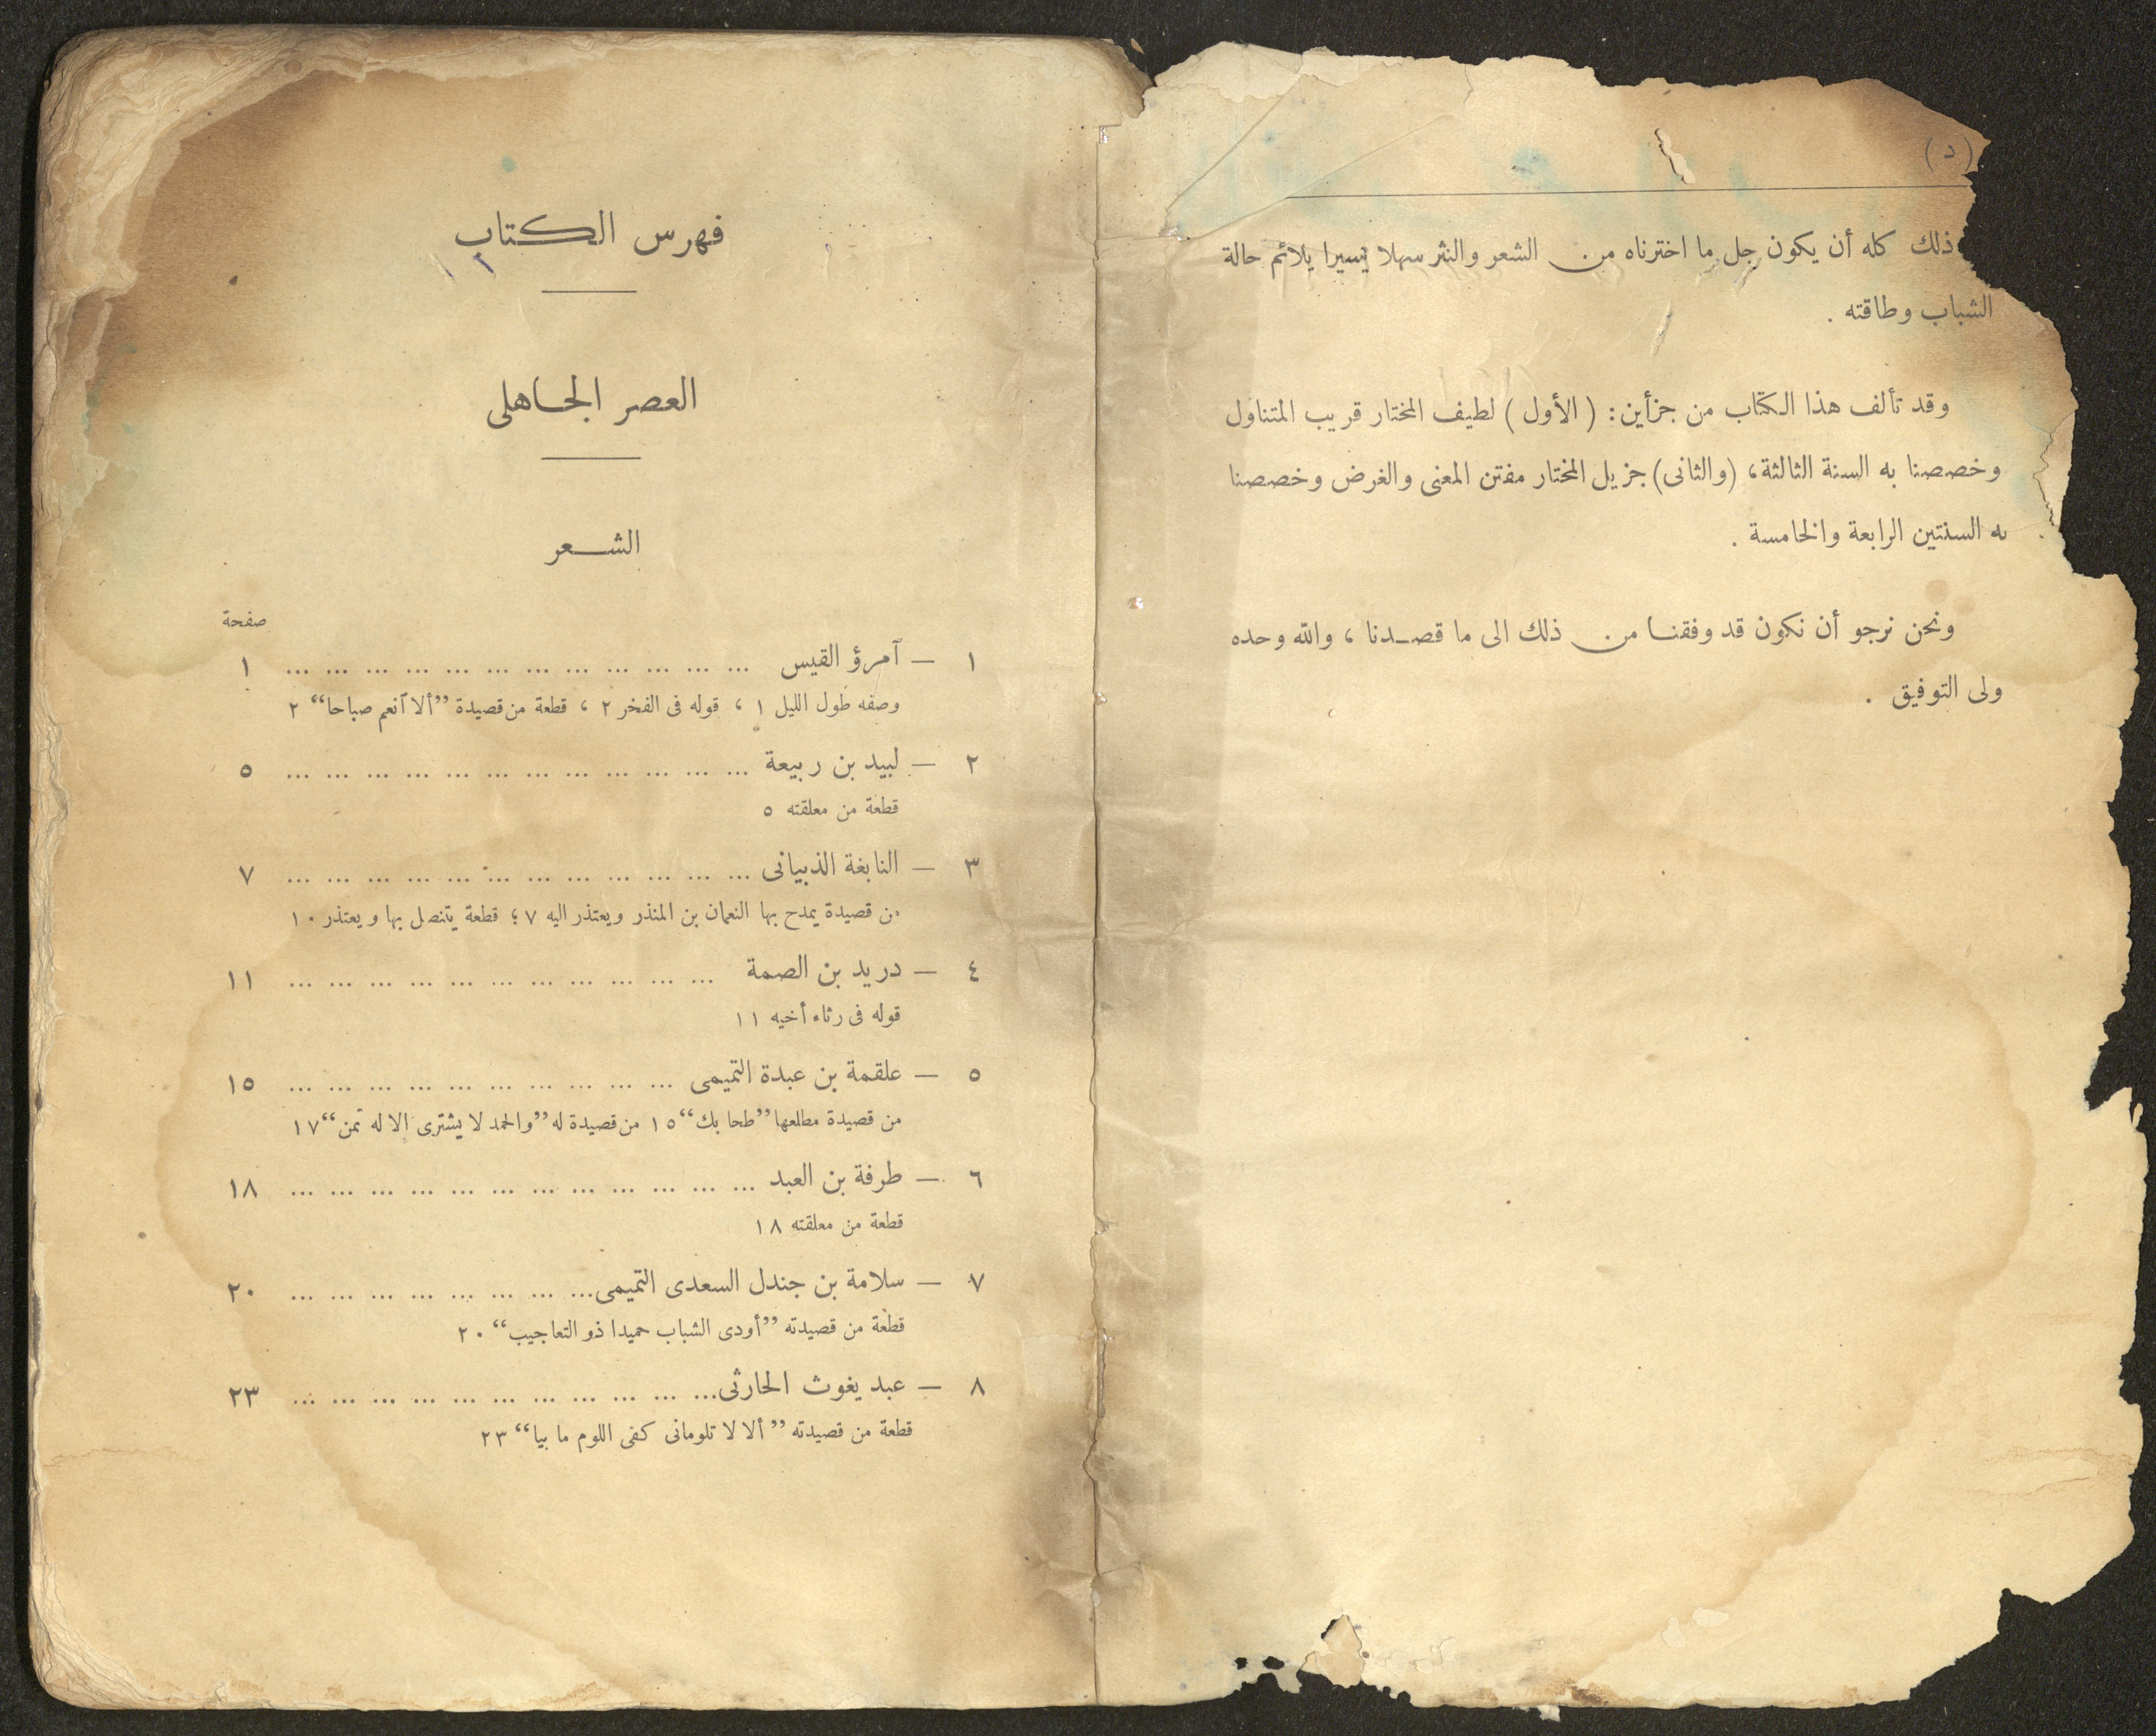 (د)
ذلك كله أن يكون جل ما اخترناه من الشعر والنثر سهلا يسيرا يلائم حالة
الشباب وطاقته .
وقد تألف هذا الكتاب من جزأين : (الأول) لطيف المختار قريب المتناول
وخصصنا به السنة الثالثة، (والثانى) جزيل المختار مفتن المعنى والغرض وخصصنا
به السنتين الرابعة والخامسة .
ونحن نرجو أن نكون قد وفقنا من ذلك الى ما قصدنا ، والله وحده
ولى التوفيق .
فهرس الكتاب
العصر الجاهلى
الشعر
صفحة
١ — آمرؤ القيس ... ... ... ... ... ... ... ... ... ... ... ... ١
وصفه طول الليل ١ ، قوله فى الفخر ٢ ، قطعة من قصيدة ”ألا آنعم صباحا“ ٢
٢ — لبيد بن ربيعة ... ... ... ... ... ... ... ... ... ... ... ... ٥
قطعة من معلقته ٥
٣ — النابغة الذبيانى ... ... ... ... ... ... ... ... ... ... ... ... ٧
من قصيدة يمدح بها النعمان بن المنذر ويعتذر اليه ٧ ؛ قطعة يتنصل بها ويعتذر ١٠
٤ — دريد بن الصمة ... ... ... ... ... ... ... ... ... ... ... ١١
قوله فى رثاء أخيه ١١
٥ — علقمة بن عبدة التميمى ... ... ... ... ... ... ... ... ... ... ١٥
من قصيدة مطلعها ”طحا بك“ ١٥ من قصيدة له ”والحمد لا يشترى الا له ثمن“ ١٧
٦ — طرفة بن العبد ... ... ... ... ... ... ... ... ... ... ... ... ١٨
قطعة من معلقته ١٨
٧ — سلامة بن جندل السعدى التميمى ... ... ... ... ... ... ... ... ٢٠
قطعة من قصيدته ”أودى الشباب حميدا ذو التعاجيب“ ٢٠
٨ — عبد يغوث الحارثى ... ... ... ... ... ... ... ... ... ... ... ٢٣
قطعة من قصيدته ”ألا لا تلومانى كفى اللوم ما بيا“ ٢٣